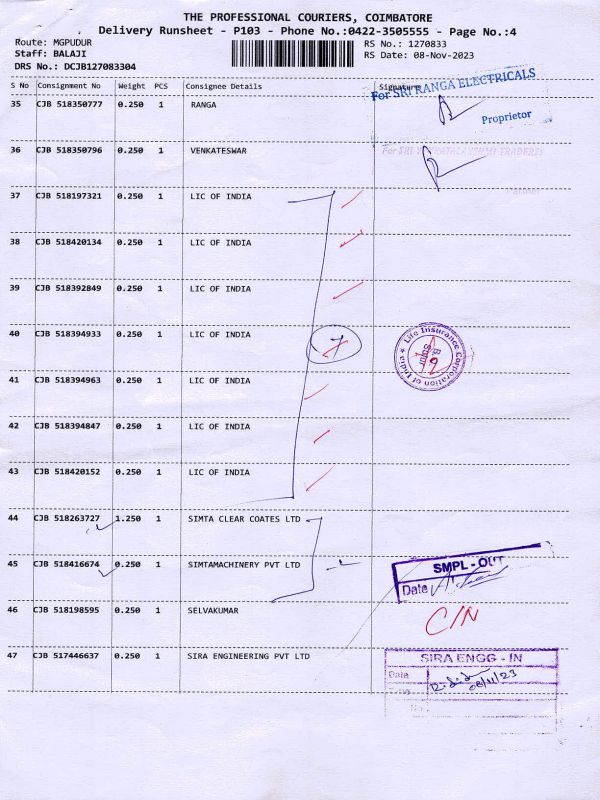 THE PROFESSIONAL COURIERS, COIMBATORE
Delivery Runsheet - P103 - Phone No.:0422-3505555 - Page No.:4
Route: MGPUDUR
RS No.: 1270833
Staff: BALAJI
RS Date: 08-Nov-2023
DRS No.: DCJB127083304
S No Consignment No Weight PCS Consignee Details Signature
For SRI RANGA ELECTRICALS
35 CJB 518350777 0.250 1 RANGA
Proprietor
36 CJB 518350796 0.250 1 VENKATESWAR
37 CJB 518197321 0.250 1 LIC OF INDIA
38 CJB 518420134 0.250 1 LIC OF INDIA
39 CJB 518392849 0.250 1 LIC OF INDIA
40 CJB 518394933 0.250 1 LIC OF INDIA
7
Life Insurance Corporation of India
41 CJB 518394963 0.250 1 LIC OF INDIA
42 CJB 518394847 0.250 1 LIC OF INDIA
43 CJB 518420152 0.250 1 LIC OF INDIA
44 CJB 518263727 1.250 1 SIMTA CLEAR COATES LTD
45 CJB 518416674 0.250 1 SIMTAMACHINERY PVT LTD
SMPL - OUT
Date
46 CJB 518198595 0.250 1 SELVAKUMAR
C/N
47 CJB 517446637 0.250 1 SIRA ENGINEERING PVT LTD
SIRA ENGG - IN
Date
08/11/23
No.